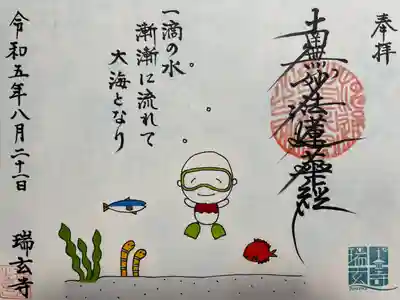 奉拝
南無妙法蓮華経
一滴の水
漸漸に流れて
大海となり
令和五年八月二十一日
瑞玄寺